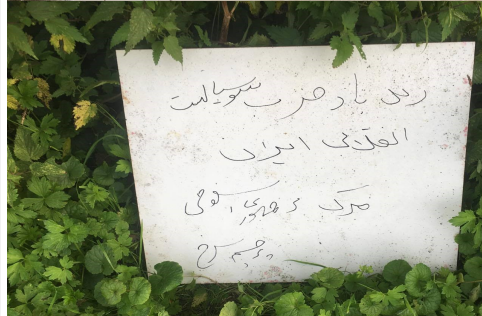 زنده باد حزب سوسیالیست
انقلابی ایران
مرگ بر جمهوری اسلامی
پرچم سرخ